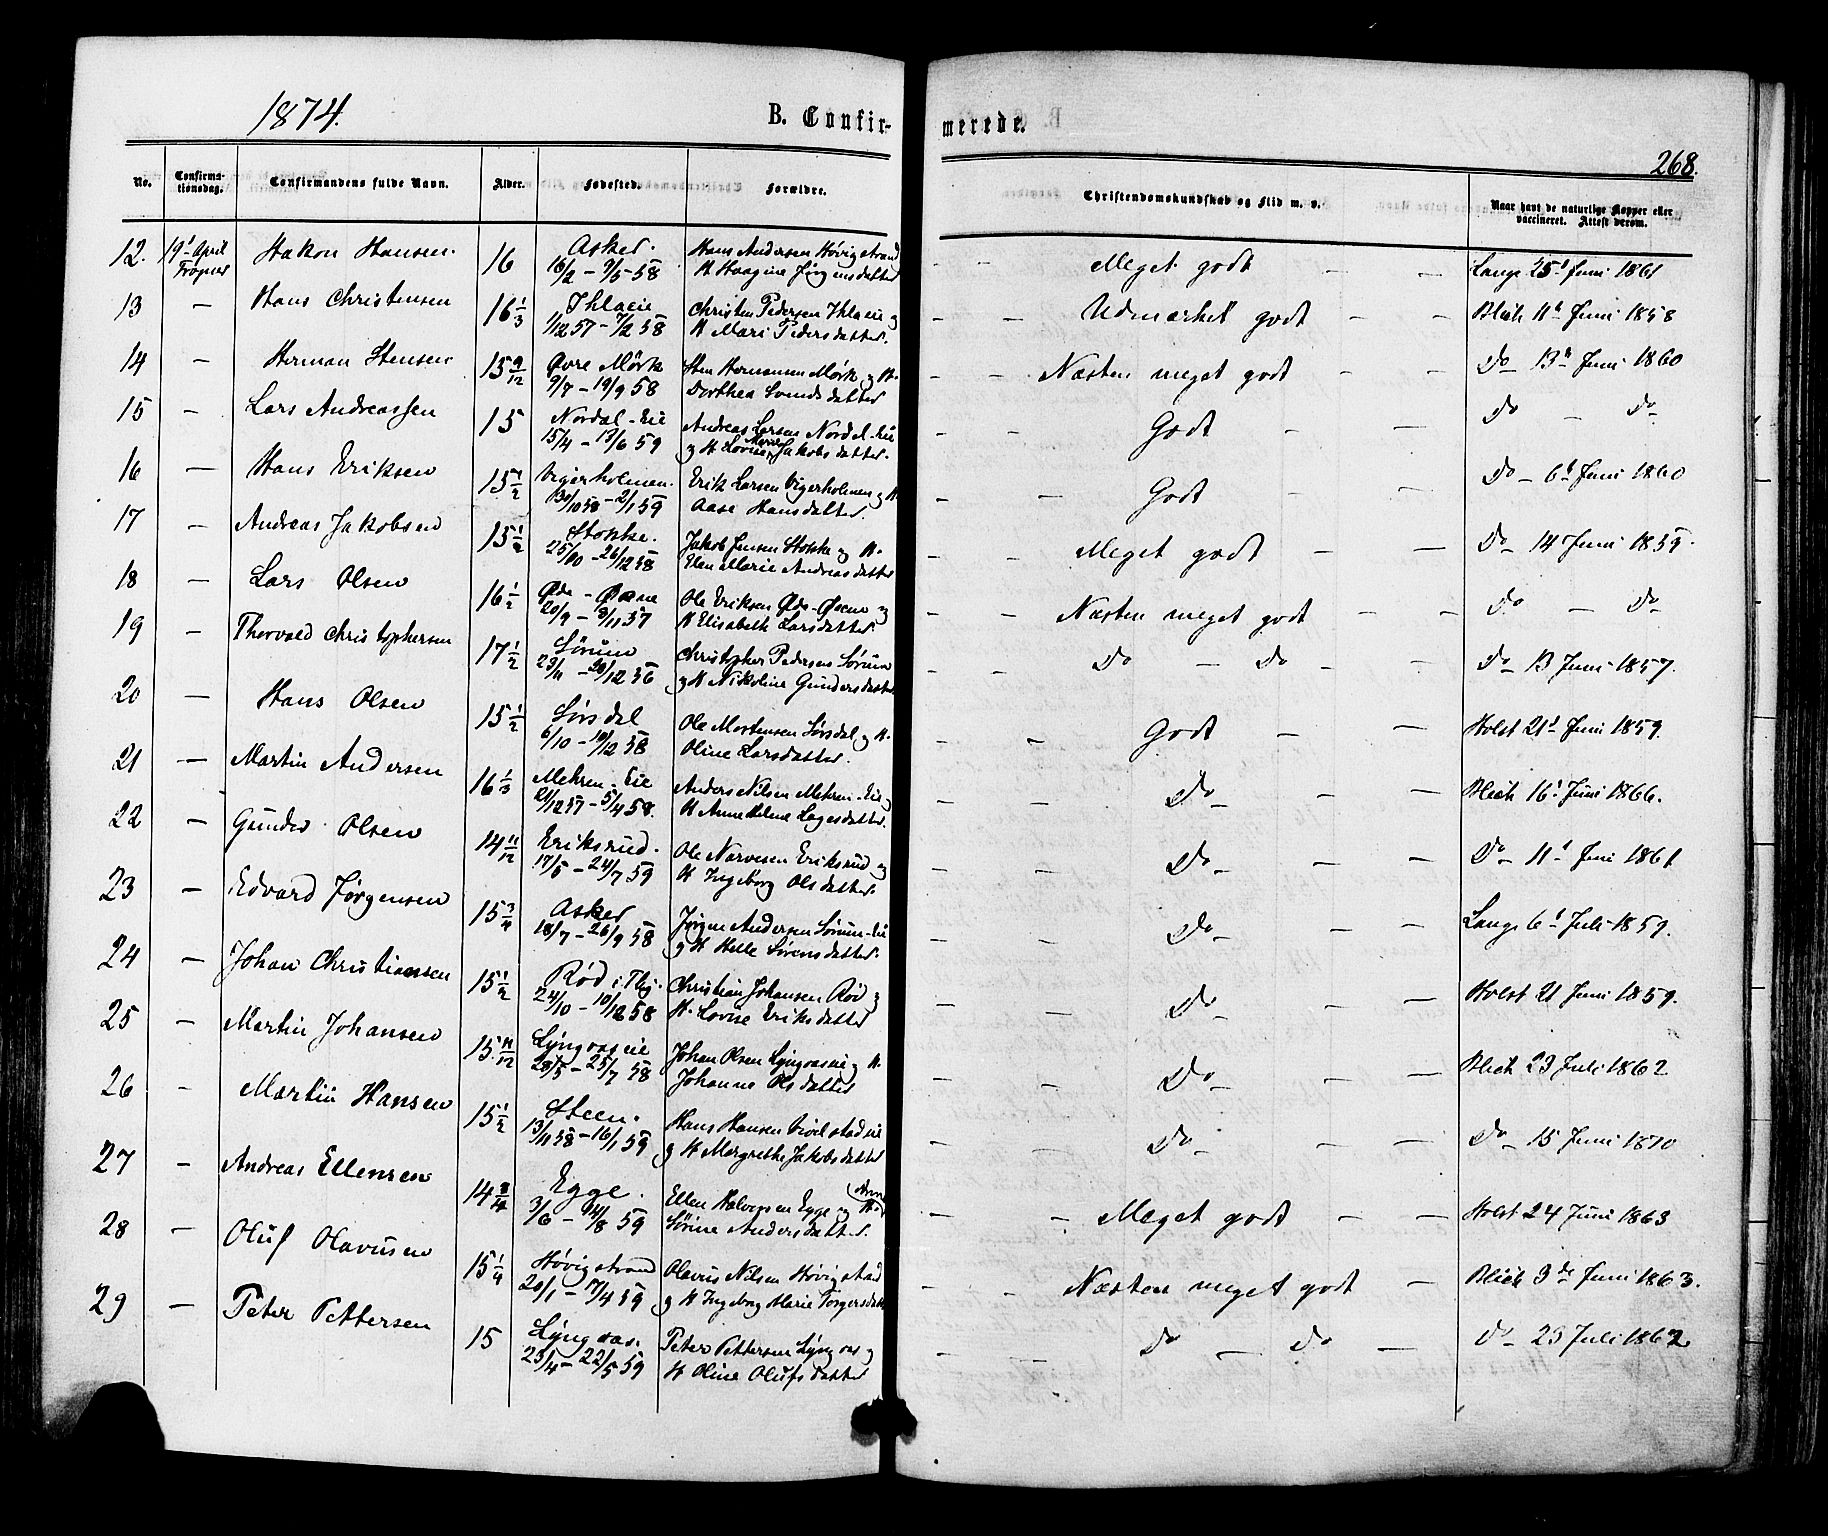 1874.
B. Confir-
merede.
268.
No.
Confirma-
tionsdag.
Confirmandens fulde Navn.
Alder.
Fødested.
Forældre.
Christendomskundskab og Flid m. v.
Naar havt de naturlige Kopper eller
vaccineret. Attest derom.
12. 19' April Hakon Hansen. 16 Asker. Hans Andersen Høvigstrand
Frogner 16/2 - 9/5 - 58 H Haagine Jørginsdatter
Meget godt — — Lange 25' Juni 1861
13 — Hans Christensen 16 1/3 Ihlaeie Christen Pedersen Ihlaeie og
1/12 57 - 7/2 58 H Mari Pedersdatter.
Udmærket godt — — Blich 11' Juni 1858
14 — Herman Stensen 15 9/12 Øvre Mörk Sten Hermansen Mørk og H.
9/7 - 19/9 58 Dorthea Svendsdatter
Næsten meget godt — — Do 13' Juni 1860
15 — Lars Andreassen 15 Nordal-Eie Andreas Larsen Nordal-Eie
15/4 - 13/6 59 og H Lovise Marie Jakobsdatter.
Godt — — Do — Do
16 — Hans Eriksen 15 1/2 Vigerholmen. Erik Larsen Vigerholmen og H.
30/10 58 - 2/1 59 Aase Hansdatter.
Godt — — Do — 6' Juni 1860
17 — Andreas Jakobsen 15 1/2 Stokke. Jakob Jensen Stokke og H.
25/10 - 26/12 58 Elen Marie Andreasdatter
Meget godt — — Do — 14 Juni 1859.
18 — Lars Olsen 16 1/2 Øde-Øvene Ole Eriksen Øde-Øvene og
20/9 - 8/11 57 H Elisabeth Larsdatter.
Næsten meget godt — — Do — Do
19 — Thorvald Christophersen 17 1/2 Sørum Christopher Pedersen Sørum
23/11 - 30/12 56 og H Nikoline Gundersdatter
Do — Do — — Do — 13 Juni 1857.
20 — Hans Olsen 15 1/2 Sørsdal Ole Mortensen Sørsdal og H.
6/10 - 19/12 58 Oline Larsdatter.
Godt — — Holst 21' Juni 1859.
21 — Martin Andersen 16 1/3 Mehren-Eie Anders Nilsen Mehren-Eie og
21/12 57 - 5/4 58. H Anne Helene Lagesdatter.
Do — — — Blich 16' Juni 1866.
22 — Gunder Olsen 14 11/12 Eriksrud. Ole Narvesen Eriksrud og
17/5 - 24/7 59 H Ingeborg Olsdatter.
Do — — — Do — 11' Juni 1861
23 — Edvard Jørgensen 15 3/4 Asker Jørgen Andersen Sørum-Eie
18/7 - 26/9 58 og H Helle Sørensdatter.
Do — — — Lange 6' Juli 1859.
24 — Johan Christiansen 15 1/2 Rød i Thj. Christian Johansen Rød og
24/10 - 10/12 58 H. Lovise Eriksdatter
Do — — — Holst 21 Juni 1859.
25 — Martin Johansen 15 11/12 Lyngvaseie Johan Olsen Lyngvaseie og H.
23/5 - 25/7 58 Johanne Olsdatter
Do — — — Blich 23 Juli 1862
26 — Martin Hansen 15 1/2 Steen. Hans Hansen
13/11 58 - 16/1 59 og H Margrethe Jakobsdatter
Do — — — Do — 15 Juni 1870
27 — Andreas Ellensen 14 3/4 Egge. Ellen Halvorsen Egge og H.
3/6 - 14/8 59 Sørine Andersdatter.
— Meget godt — — Holst 24 Juni 1863
28 — Oluf Olavusen 15 1/4 Høvigstrand Olavus Nilsen Høvigstad
20/1 - 17/4 59 og H Ingeborg Marie Torgersdatter
Næsten meget godt — Blich 3de Juni 1863.
29 — Peter Pettersen 15 Lyngvas. Peter Pettersen Lyngvas og
23/4 - 22/5 59 H Oline Olufsdatter
Do — Do — Do — 23 Juli 1862